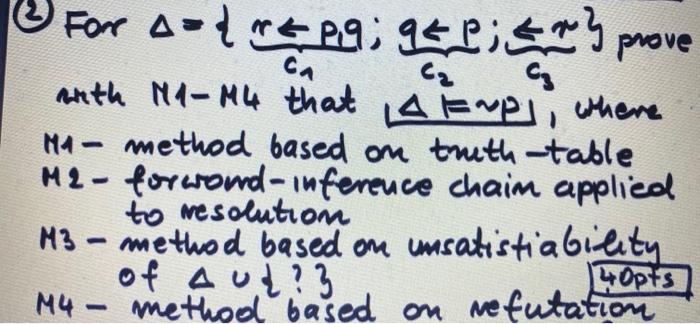 ② For Δ = { r ← p,q ; q ← p ; ← r } prove
C1 C2 C3
with M1-M4 that Δ ⊨ ~p , where
M1 - method based on truth-table
M2 - forword-inference chain applied
to resolution
M3 - method based on unsatisfiability
of Δ ∪ { ? }
40pts
M4 - method based on refutation